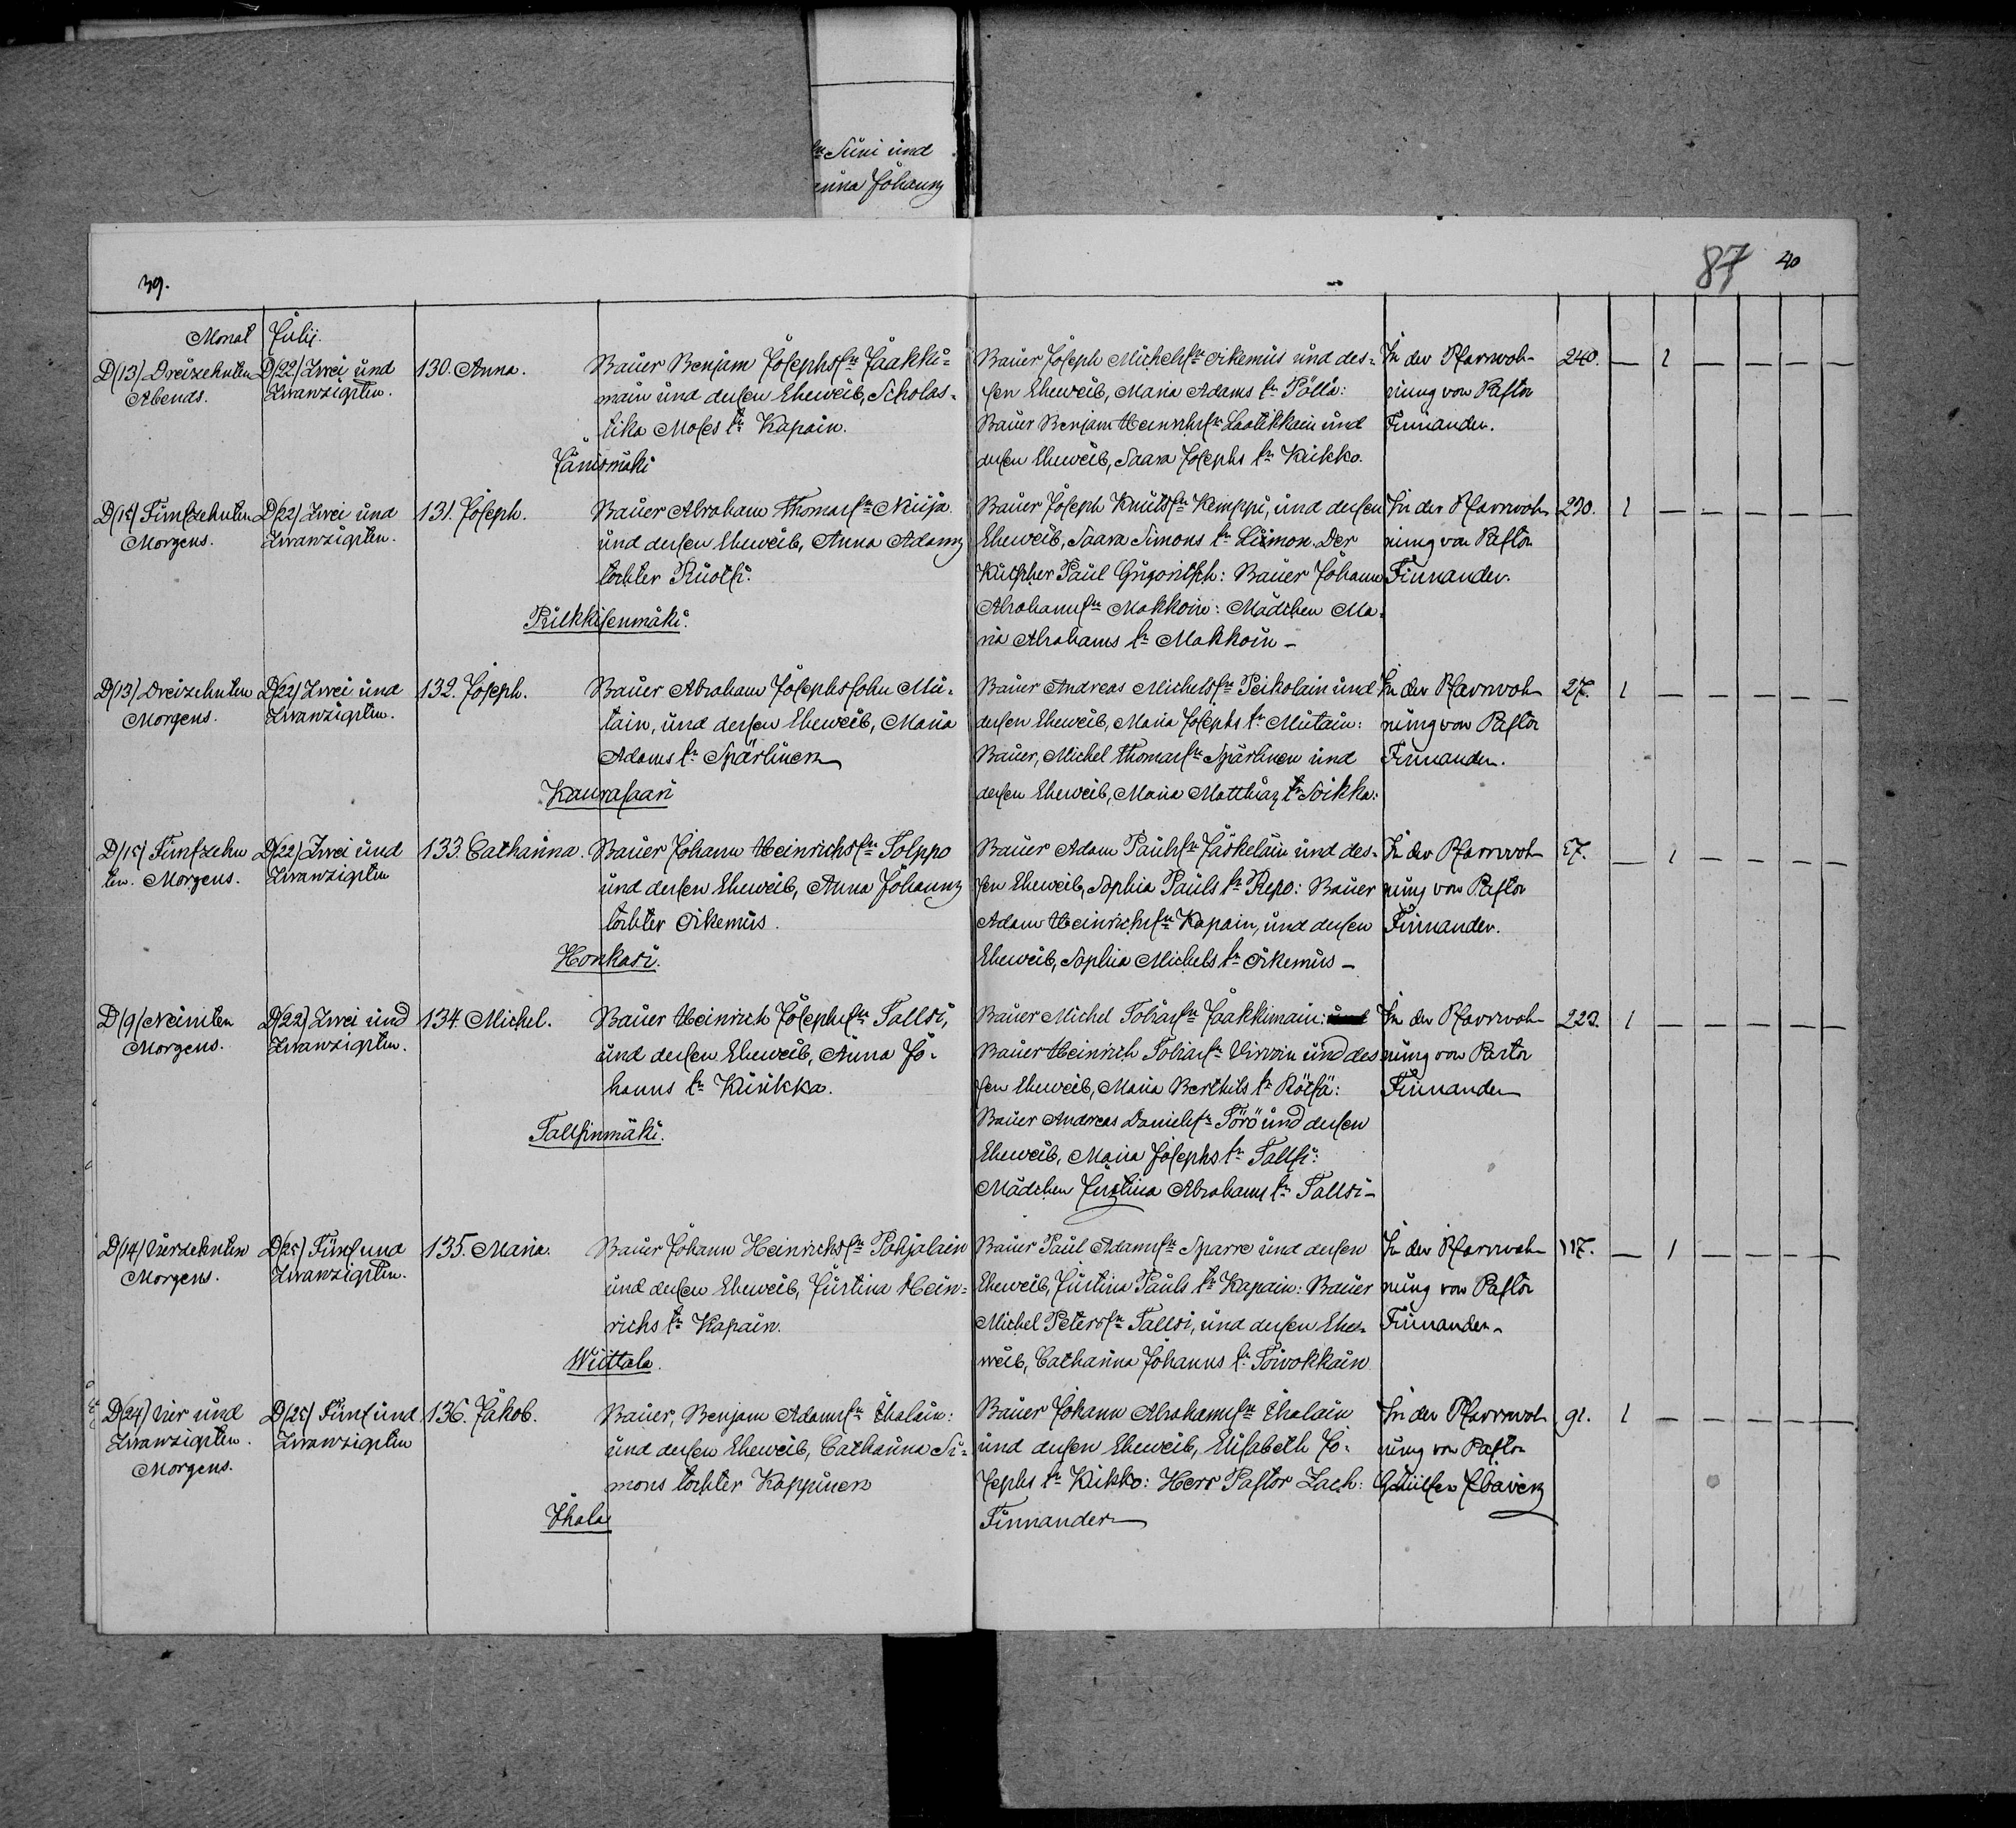 Süni und
Johanns
39.
87 40
Monat Julij.
D(13) Dreizehnten
Abends.
D(22) Zwei und
Zwanzigsten.
130. Anna.
Bauer Benjam Josephs sn Jäakki-
main und dessen Eheweib, Scholas-
tika Moses tr Kapain.
Jänismäki
Bauer Joseph Michels sn Oikemus und des-
sen Eheweib, Maria Adams tr Pöllä:
Bauer Benjam Heinrichs sn Laatikkain und
dessen Eheweib, Saara Josephs tr Kiikko.
In der Pfarrwoh-
nung von Pastor
Finnander.
240. — 1 — — — —
D(15) Fünfzehnten
Morgens.
D(22) Zwei und
Zwanzigsten.
131. Joseph.
Bauer Abraham Thomas sn Niija
und dessen Eheweib, Anna Adams
tochter Ruotsi.
Pilkkisenmäki.
Bauer Joseph Knuts sn Kemppi, und dessen
Eheweib, Saara Simons tr Liimon. Der
Kutscher Paul Grigoritsch: Bauer Johann
Abrahams sn Mokkoin: Mädchen Ma-
ria Abrahams tr Mokkoin —
In der Pfarrwoh-
nung von Pastor
Finnander.
230. 1 — — — — —
D(13) Dreizehnten
Morgens.
D(22) Zwei und
Zwanzigsten.
132. Joseph.
Bauer Abraham Josephs sohn Mu-
tain, und dessen Eheweib, Maria
Adams tr Spärlinen
Kaurasaari
Bauer Andreas Michels sn Peikolain und
dessen Eheweib, Maria Josephs tr Mutain:
Bauer, Michel Thomas sn Spärlinen und
dessen Eheweib, Maria Matthias tr Soikka:
In der Pfarrwoh-
nung von Pastor
Finnander.
27. 1 — — — — —
D(15) Fünfzehn
ten. Morgens.
D(22) Zwei und
Zwanzigsten
133. Catharina.
Bauer Johann Heinrichs sn Tolppo
und dessen Eheweib, Anna Johanns
tochter Oikemus.
Honkasi.
Bauer Adam Pauls sn Jäskeläin und des-
sen Eheweib, Sophia Pauls tr Repo: Bauer
Adam Heinrichs sn Kapain, und dessen
Eheweib, Sophia Michels tr Oikemus —
In der Pfarrwoh-
nung von Pastor
Finnander.
57. — 1 — — — —
D(9) Neünten
Morgens.
D(22) Zwei und
Zwanzigsten.
134. Michel.
Bauer Heinrich Josephs sn Tallsi,
und dessen Eheweib, Anna Jo-
hanns tr Kiirikka.
Tallsinmäki.
Bauer Michel Tobias sn Jäakkimain:
Bauer Heinrich Tobias sn Virroin und des
sen Eheweib, Maria Berthils tr Rötsä:
Bauer Andreas Daniels sn Törö und dessen
Eheweib, Maria Josephs tr Tallsi:
Mädchen Justina Abrahams tr Tallsi —
In der Pfarrwoh-
nung von Pastor
Finnander
223. 1 — — — — —
D(14) Vierzehnten
Morgens.
D(25) Fünf und
Zwanzigsten.
135. Maria.
Bauer Johann Heinrichs sn Pohjalain
und dessen Eheweib, Justina Hein-
richs tr Kapain.
Wiittala.
Bauer Paul Adams sn Sparre und dessen
Eheweib, Justina Pauls tr Kapain: Bauer
Michel Peters sn Tallsi, und dessen Ehe-
weib, Catharina Johanns tr Toivokkain
In der Pfarrwoh-
nung von Pastor
Finnander.
117. — 1 — — — —
D(24) Vier und
Zwanzigsten.
Morgens.
D(25) Fünf und
Zwanzigsten
136. Jakob.
Bauer, Benjam Adams sn Ihalain:
und dessen Eheweib, Catharina Si-
mons tochter Kappinen
Ihala
Bauer Johann Abrahams sn Ihalain
und dessen Eheweib, Elisabeth Jo-
sephs tr Kiikko: Herr Pastor Zach:
Finnander
In der Pfarrwoh-
nung von Pastor
91. 1 — — — — —